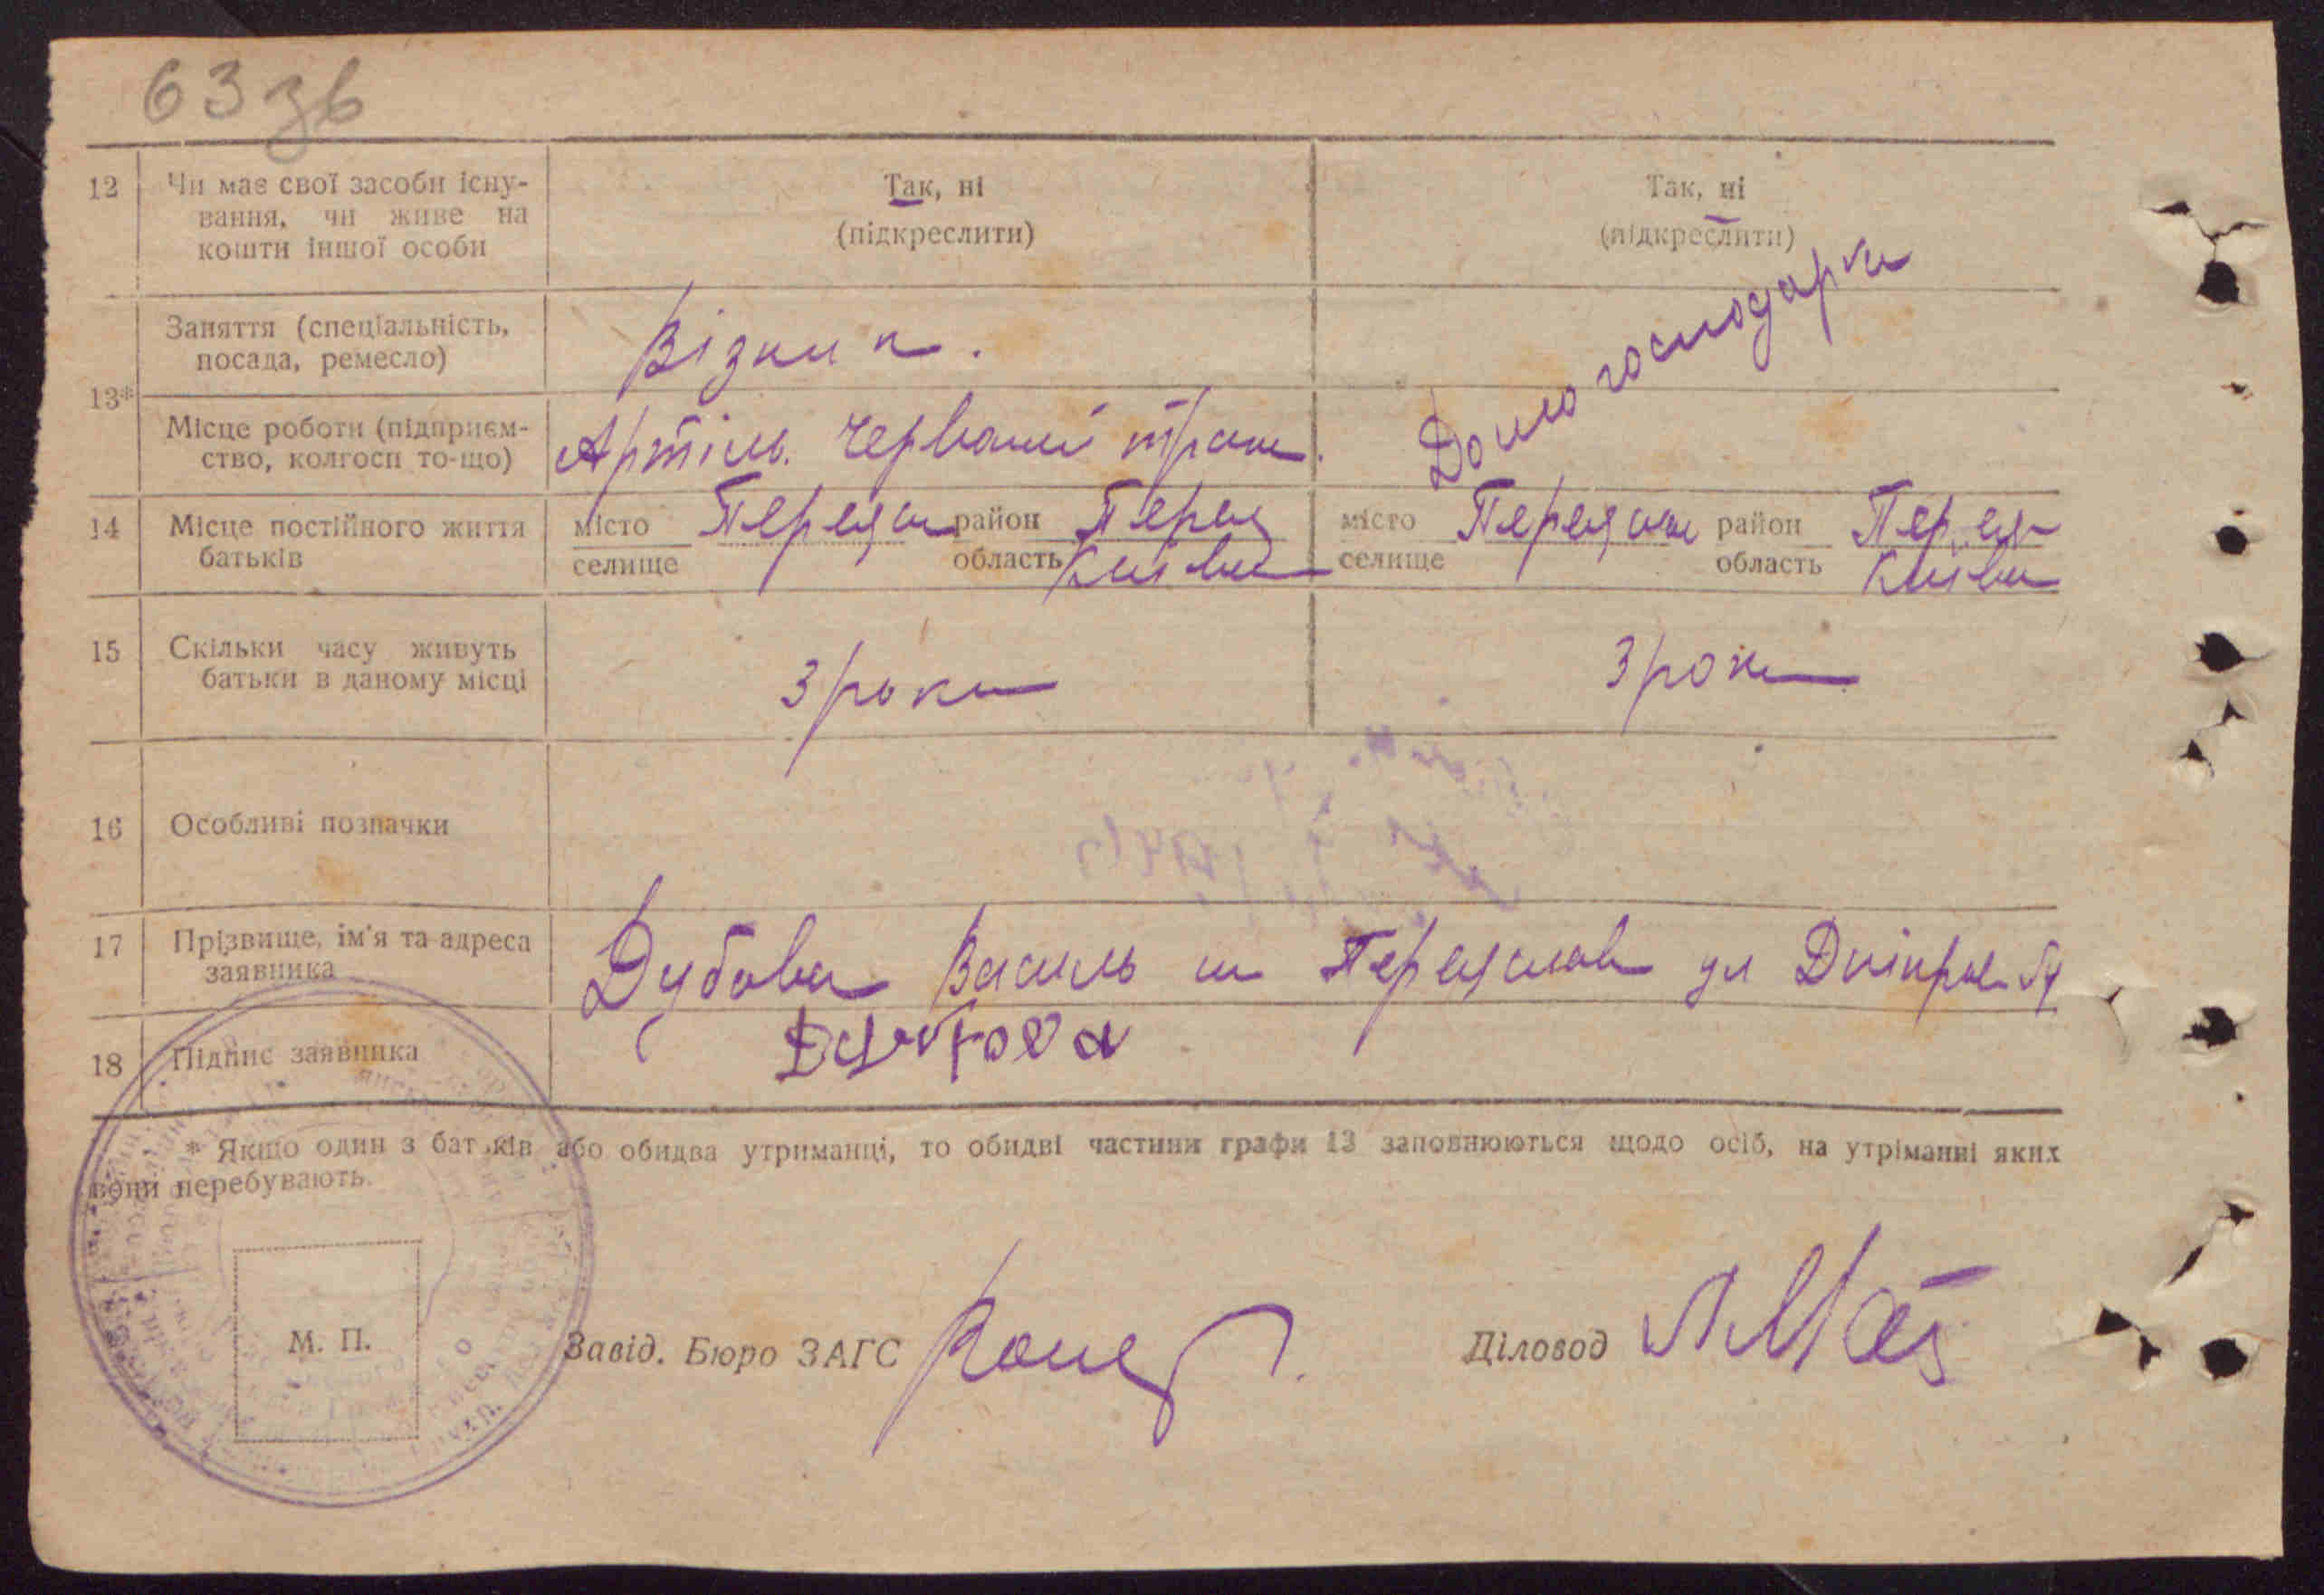 63 зв
12 Чи має свої засоби існу-
вання, чи живе на
кошти іншої особи
Так, ні
(підкреслити)
Так, ні
(підкреслити)
13*
Заняття (спеціальність,
посада, ремесло)
Візник.
Домогосподарки
Місце роботи (підприєм-
ство, колгосп то-що)
Артіль. Червоний тран.
14 Місце постійного життя
батьків
місто Переяслав район Перея
селище область Київ
місто Переяслав район Перея
селище область Київ
15 Скільки часу живуть
батьки в даному місці
3 роки
3 роки
16 Особливі позначки
17 Прізвище, ім'я та адреса
заявника
Дубова Василь м Переяслав ул Дніпров
18 Підпис заявника
Дубова
* Якщо один з батьків або обидва утриманці, то обидві частини графи 13 заповнюються щодо осіб, на утріманні яких
вони перебувають.
М. П.
Завід. Бюро ЗАГС
Діловод